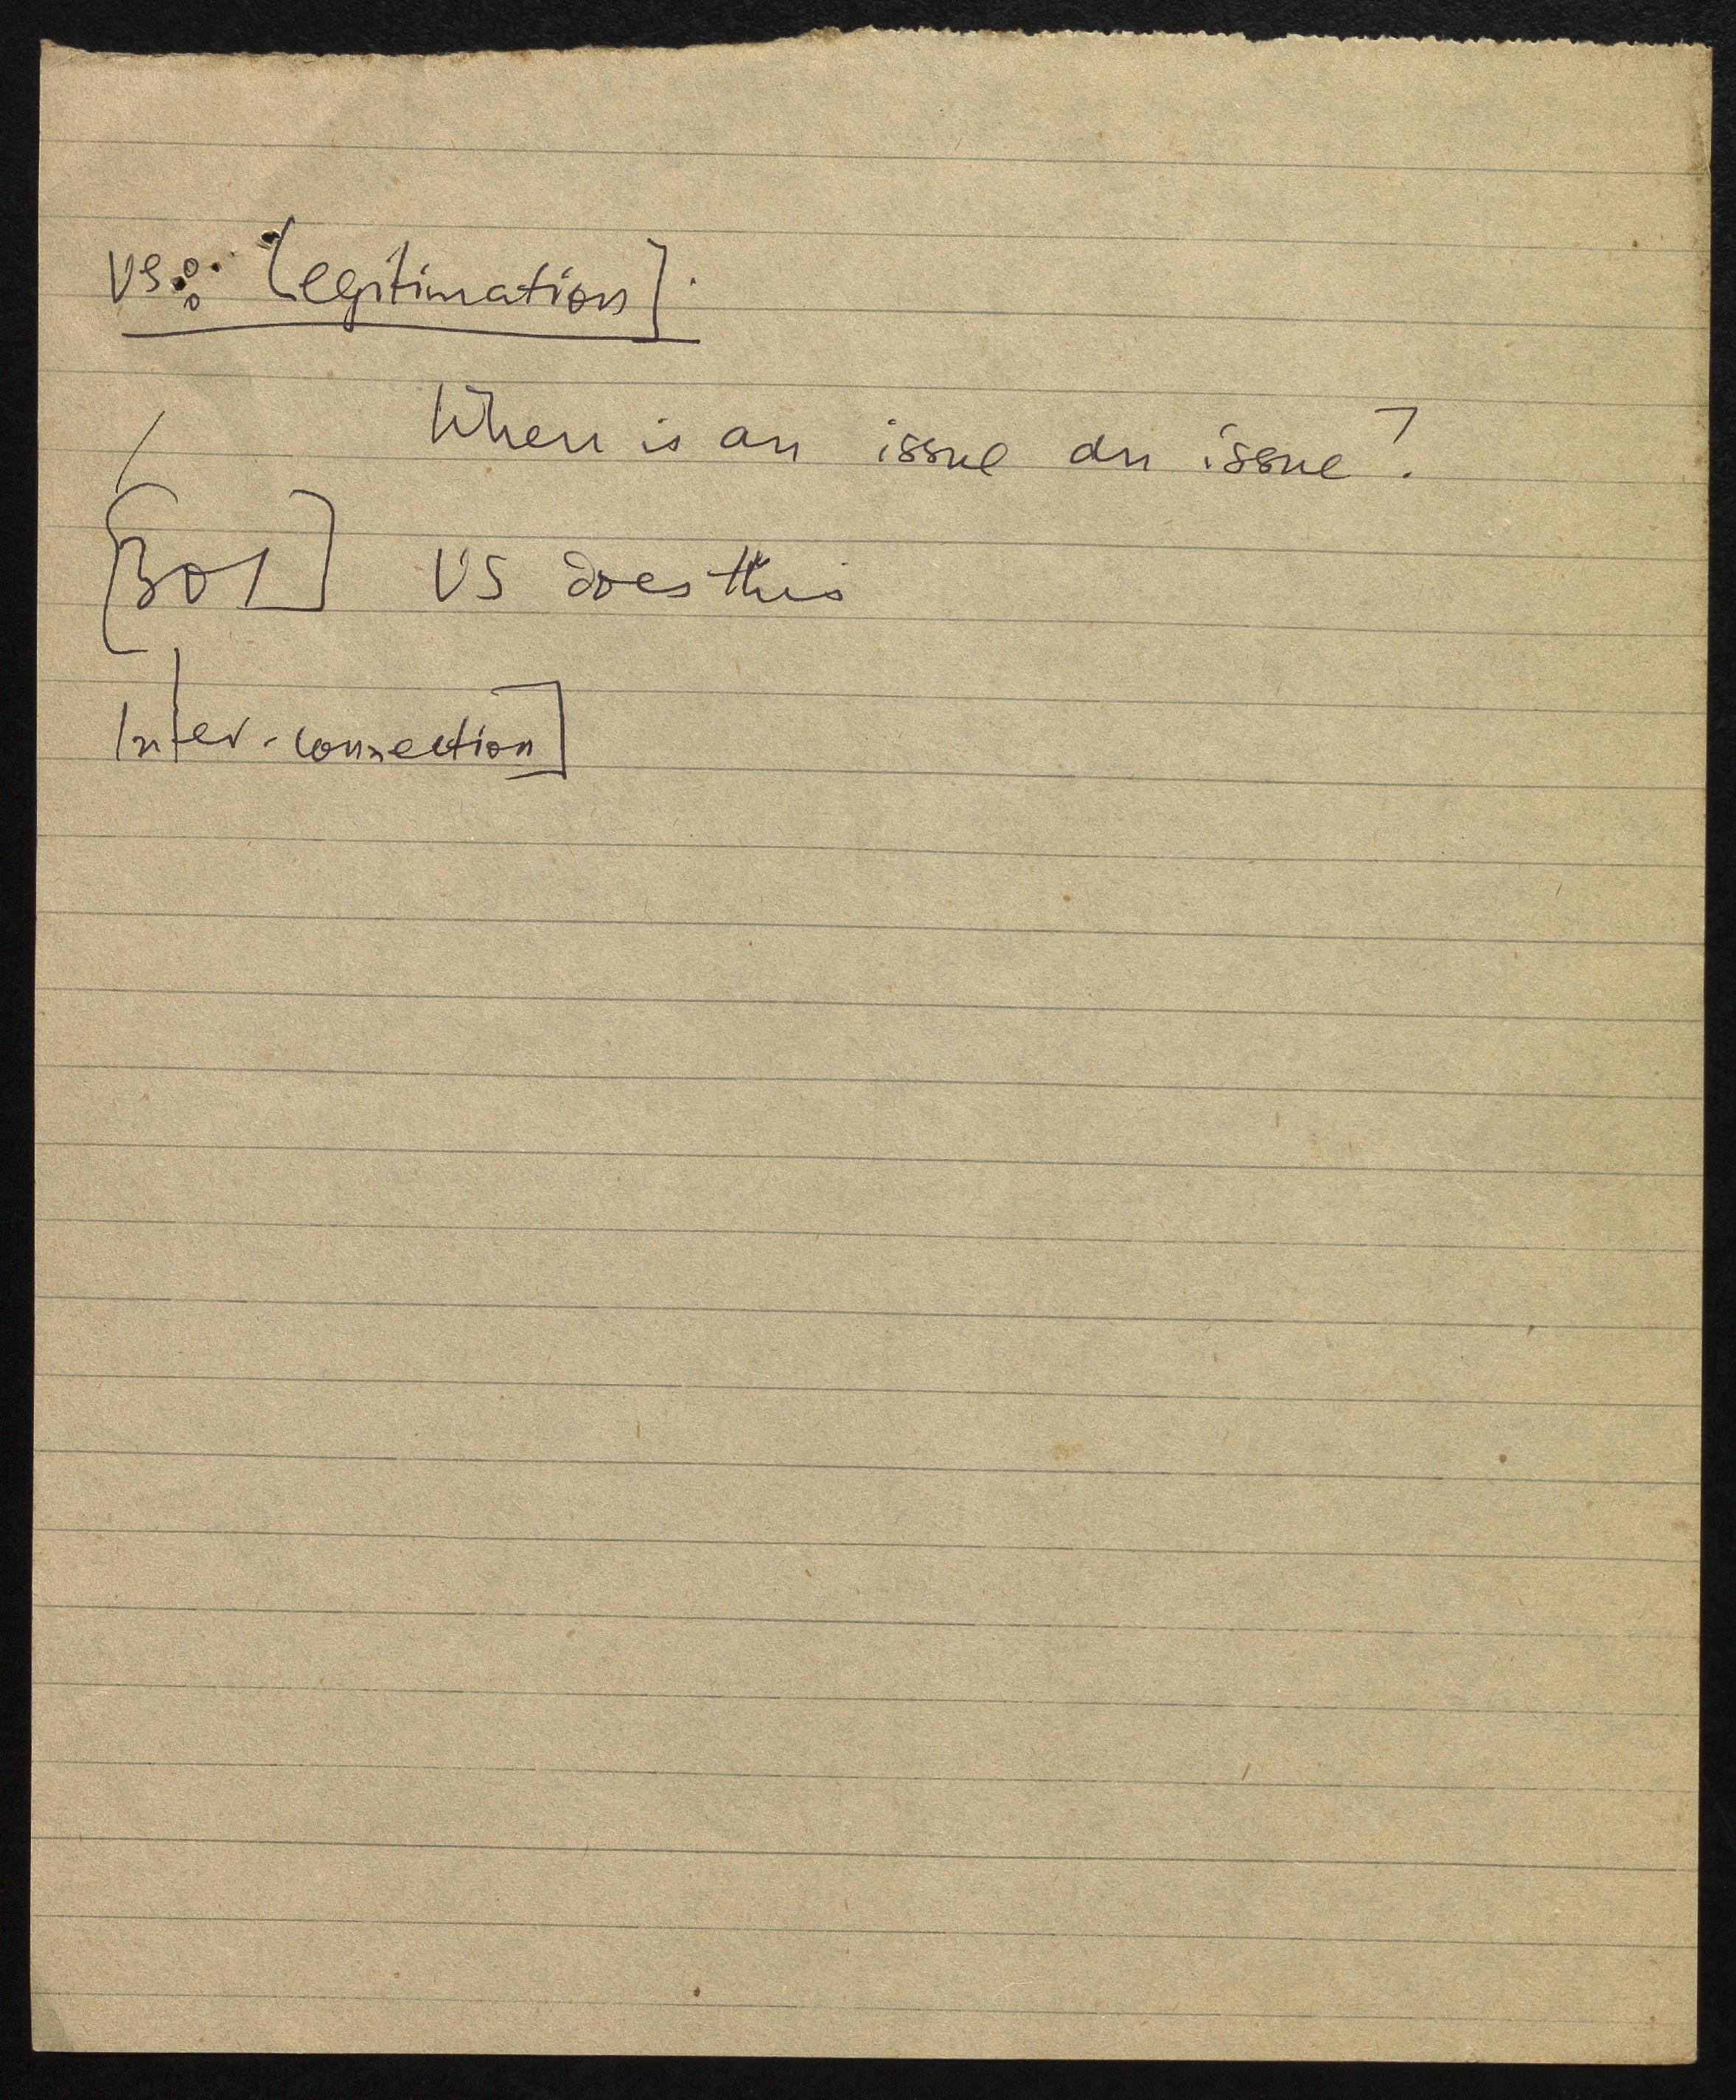 VS: [Legitimation].
When is an issue an issue?
[301] VS does this
Inter-connection]